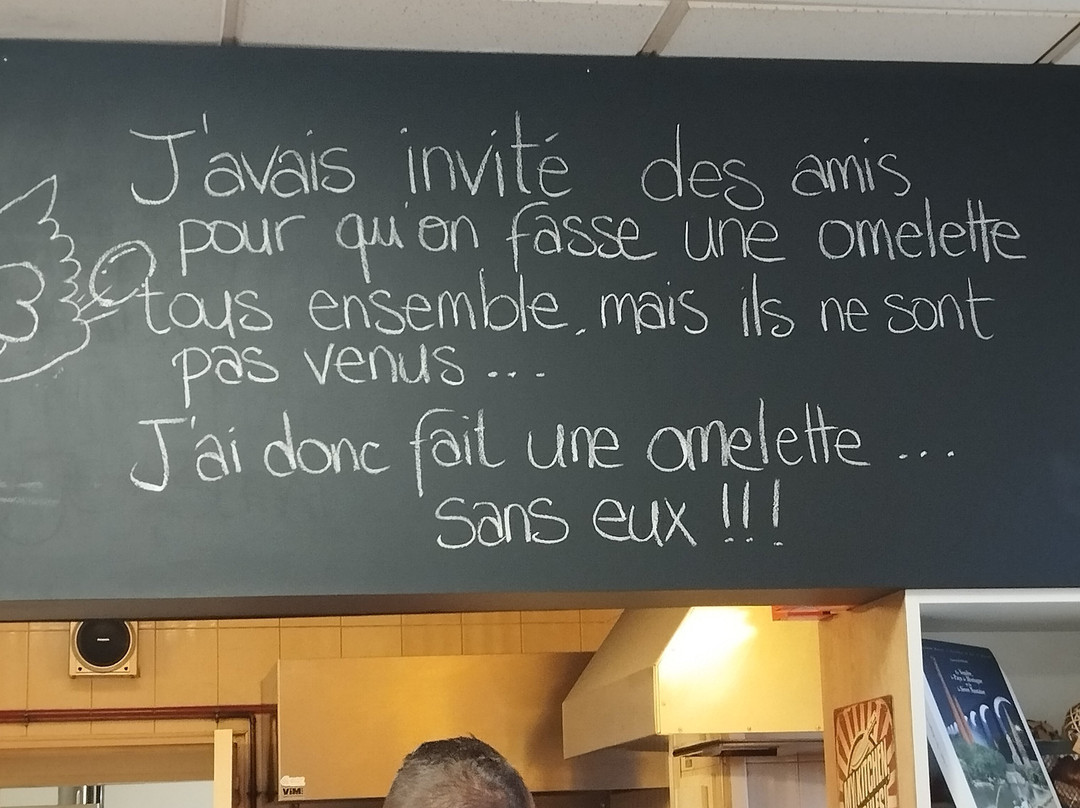 J'avais invité des amis
pour qu'on fasse une omelette
tous ensemble, mais ils ne sont
pas venus...
J'ai donc fait une omelette...
sans eux !!!
ViM
KITCHEN